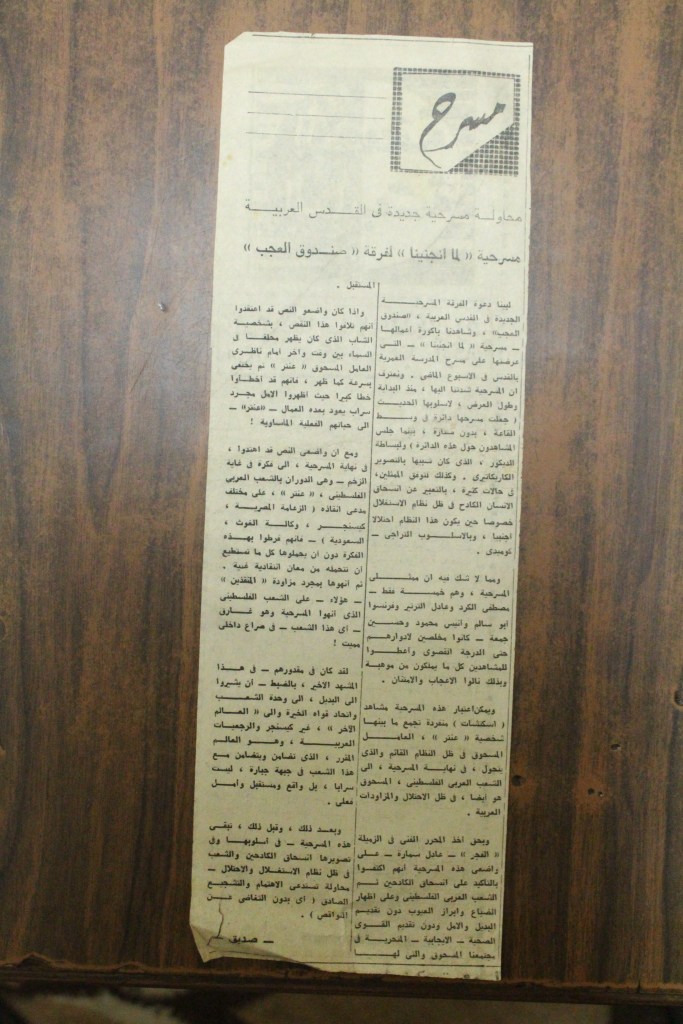 مسرح
محاولة مسرحية جديدة في القدس العربية
مسرحية « لما انجنينا » لفرقة « صندوق العجب »
لبينا دعوة الفرقة المسرحية
الجديدة في القدس العربية ، «صندوق
العجب» ، وشاهدنا باكورة اعمالها
ــ مسرحية « لما انجنينا » ــ التي
عرضتها على مسرح المدرسة العمرية
بالقدس في الاسبوع الماضي . ونعترف
ان المسرحية شدتنا اليها ، منذ البداية
وطول العرض ، لاسلوبها الحديث
( جعلت مسرحها دائرة في وسط
القاعة ، بدون ستارة ، بينما جلس
المشاهدون حول هذه الدائرة ) ولبساطة
الديكور ، الذي كان شبيها بالتصوير
الكاريكاتيري . وكذلك لتوفق الممثلين،
في حالات كثيرة ، بالتعبير عن انسحاق
الانسان الكادح في ظل نظام الاستغلال
خصوصا حين يكون هذا النظام احتلالا
اجنبيا ، وبالاسلوب التراجي ــ
كوميدي .
ومما لا شك فيه ان ممثلي
المسرحية ، وهم خمسة فقط ــ
مصطفى الكرد وعادل الترتير وفرنسوا
ابو سالم وانيس محمود وحسين
جمعة ــ كانوا مخلصين لادوارهم
حتى الدرجة القصوى واعطوا
للمشاهدين كل ما يملكون من موهبة
وبذلك نالوا الاعجاب والامتنان .
ويمكن اعتبار هذه المسرحية مشاهد
( اسكتشات ) منفردة تجمع ما بينها
شخصية « عنتر » ، العامل
المسحوق في ظل النظام القائم والذي
يتحول ، في نهاية المسرحية ، الى
الشعب العربي الفلسطيني ، المسحوق
هو ايضا ، في ظل الاحتلال والمزاودات
العربية .
ويحق أخذ المحرر الفني في الزميلة
« الفجر » ــ عادل سمارة ــ على
واضعي هذه المسرحية انهم اكتفوا
بالتأكيد على انسحاق الكادحين ثم
الشعب العربي الفلسطيني وعلى اظهار
الضياع وابراز العيوب دون تقديم
البديل والامل ودون تقديم القوى
الصحية ــ الايجابية ــ المتحررة في
مجتمعنا المسحوق والتي لها
المستقبل .
واذا كان واضعو النص قد اعتقدوا
انهم تلافوا هذا النقص ، بشخصية
الشاب الذي كان يظهر محلقا في
السماء بين وقت وآخر امام ناظري
العامل المسحوق « عنتر » ثم يختفي
بسرعة كما ظهر ، فانهم قد اخطأوا
خطأ كبيرا حيث اظهروا الامل مجرد
سراب يعود بعده العمال ــ «عنتر» ــ
الى حياتهم الفعلية المأساوية !
ومع ان واضعي النص قد اهتدوا ،
في نهاية المسرحية ، الى فكرة في غاية
الزخم ــ وهي الدوران بالشعب العربي
الفلسطيني ، « عنتر » ، على مختلف
مدعي انقاذه ( الزعامة المصرية ،
كيسنجر ، وكالة الغوث ،
السعودية ) ــ فانهم فرطوا بهذه
الفكرة دون ان يحملوها كل ما تستطيع
ان تتحمله من معان انتقادية غنية .
ثم انهوها بمجرد مزاودة « المنقذين »
ــ هؤلاء ــ على الشعب الفلسطيني
الذي انهوا المسرحية وهو غارق
ــ أي هذا الشعب ــ في صراع داخلي
مميت !
لقد كان في مقدورهم ــ في هذا
المشهد الاخير ، بالضبط ــ ان يشيروا
الى البديل ، الى وحدة الشعب
واتحاد قواه الخيرة والى « العالم
الآخر » ، غير كيسنجر والرجعيات
العربية ، وهو العالم
المتحرر ، الذي تضامن ويتضامن مع
هذا الشعب في جبهة جبارة ، ليست
سرابا ، بل واقع ومستقبل وامل
فعلي .
وبعد ذلك ، وقبل ذلك ، تبقى
هذه المسرحية ــ في اسلوبها وفي
تصويرها انسحاق الكادحين والشعب
في ظل نظام الاستغلال والاحتلال ــ
محاولة تستدعي الاهتمام والتشجيع
الصادق ( أي بدون التغاضي عن
النواقص ) .
ــ صديق ــ